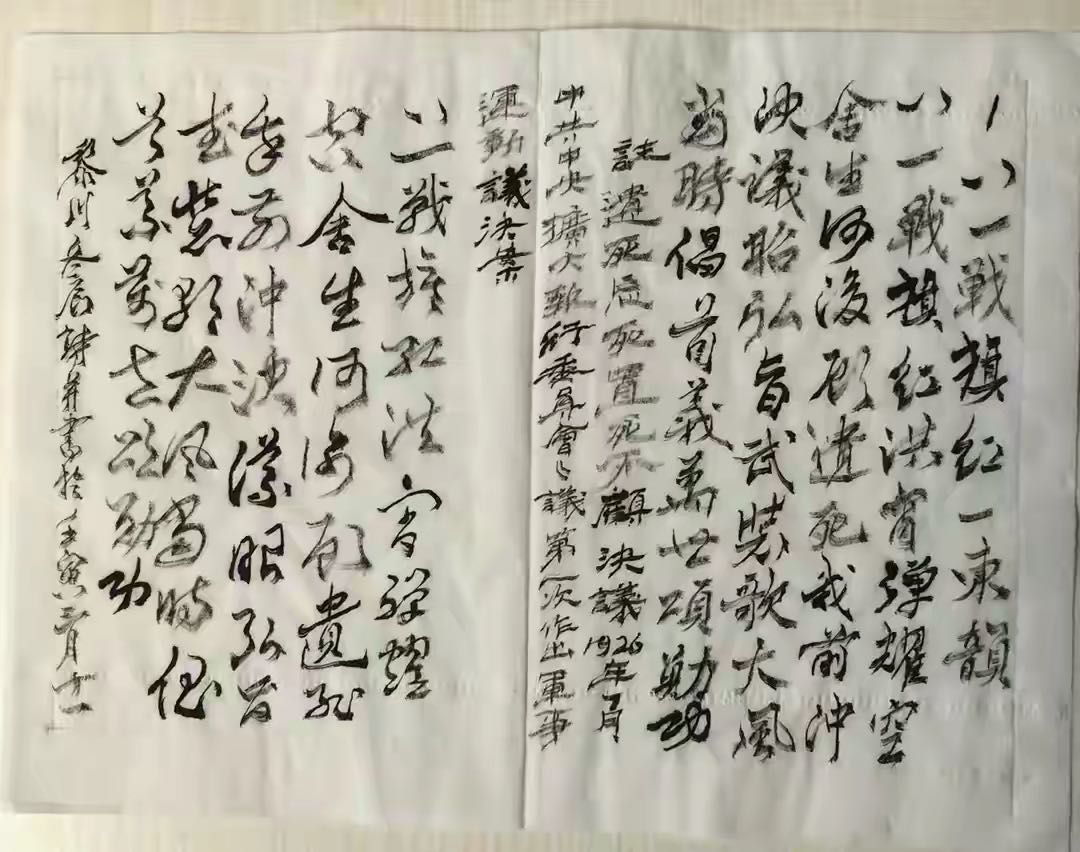 八一戰旗紅一東韻
八一戰旗紅洪宵彈耀空
舍生何後顧遺死我前沖
決議昭弘旨武裝歌大風
當時倡首義萬世頌勛功
註遺死屈死置死不顧決議1926年7月
中共中央擴大執行委員會會議第一次作出軍事
運動議決案
八一戰旗紅洪宵彈耀
空舍生何後顧遺死
我前沖決議昭弘旨
武裝歌大風當時倡
首義萬世頌勛功
黎川 詩並書於壬寅三月十一